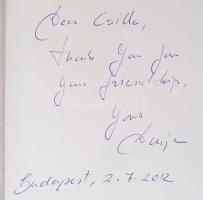 Dear Csilla,
Thank you for
your friendship,
Yours
Budapest, 2.7.2012